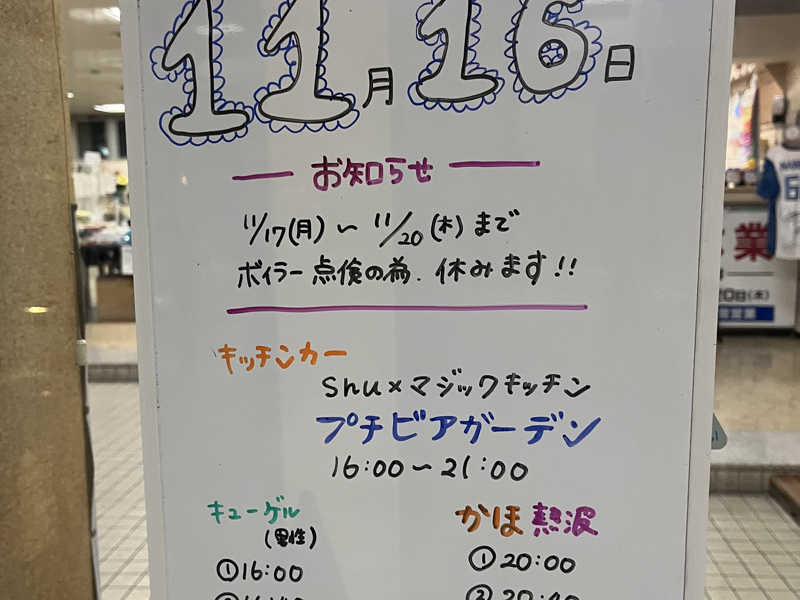 11月16日
お知らせ
11/17(月)～11/20(木)まで
ボイラー点検の為、休みます!!
キッチンカー
shu×マジックキッチン
プチビアガーデン
16:00～21:00
キューゲル
(男性)
①16:00
かほ熱波
①20:00
業
20日(木)
6